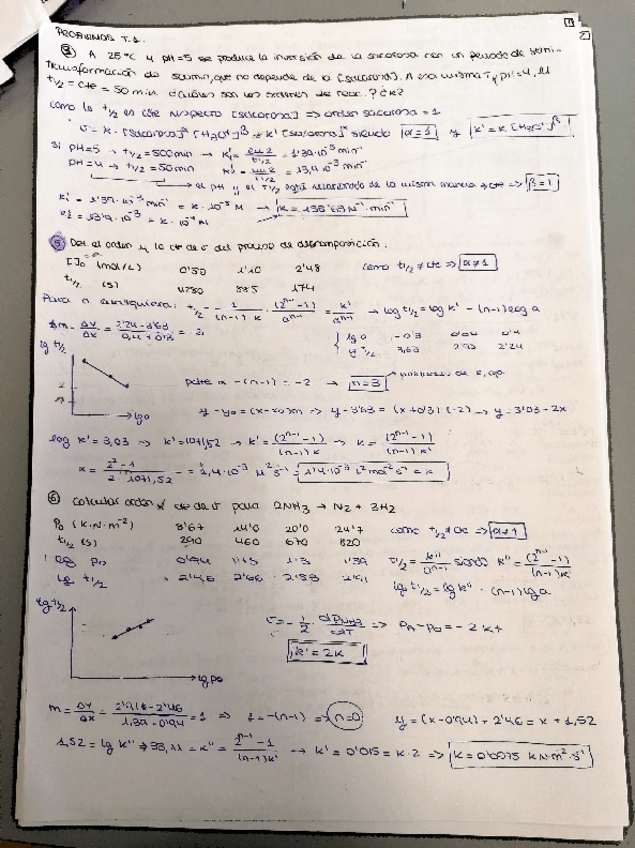 PROBLEMAS T.1.
③ A 25°C y pH=5 se produce la inversión de la sacarosa con un periodo de semi-
transformación de 500min, que no depende de la [sacarosa]. A esa misma T y pH=4, el
t1/2 = cte = 50 min ¿Cuáles son los órdenes de reac.? ¿k?
Como la t1/2 es cte respecto [sacarosa] => orden sacarosa = 1
v = k · [sacarosa]^α [H3O+]^β = k' [sacarosa]^α siendo α=1 y k' = k [H3O+]^β
Si pH=5 → t1/2 = 500min → k1' = ln 2 / t1/2 = 1'39·10^-3 min^-1
pH=4 → t1/2 = 50min k2' = ln 2 / t1/2 = 13,9·10^-3 min^-1
→ el pH y el t1/2 de la misma manera => β=1
k1' = 1'39·10^-3 min^-1 = k · 10^-5 M → k = M^-1 · min^-1
k2' = 13'9·10^-3 = k · 10^-4 M
⑤ Det. el orden y la cte de v del proceso de descomposición:
[ ]0 = a (mol/L) 0'50 1'10 2'48 como t1/2 ≠ cte => α≠1
t1/2 (s) 4280 885 174
Para n cualquiera: t1/2 = 1/(n-1)k · (2^(n-1) -1)/a^(n-1) = k'/a^(n-1) → log t1/2 = log k' - (n-1) log a
m = Δy/Δx = 2'24-3'63 / 0,4+0'3 = -2
lg a -0'3 0'04 0'4
lg t1/2 3,63 2'95 2'24
lg t1/2
lg a
pdte = -(n-1) = -2 → n=3
y-y0 = (x-x0)m => y-3'63 = (x+0'3)(-2) → y = 3'03-2x
log k' = 3,03 => k' = 1071,52 → k' = (2^(n-1) -1)/(n-1)k → k = (2^(n-1) -1)/(n-1)k'
k = 2^2 -1 / 2 · 1071,52 = 1,4·10^-3 M^-2 s^-1 = 1'4·10^-3 L^2 mol^-2 s^-1 = k
⑥ Calcular orden y cte de v para 2NH3 → N2 + 3H2
P0 (k·N·m^-2) 8'67 14'0 20'0 24'7 como t1/2 ≠ cte => α≠1
t1/2 (s) 290 460 670 820
log p0 0'94 1'15 1'3 1'39 t1/2 = k''/a^(n-1) siendo k'' = (2^(n-1) -1)/(n-1)k'
lg t1/2 2'46 2'66 2'83 2'91 lg t1/2 = lg k'' - (n-1) lg a
lg t1/2
lg p0
v = -1/2 · dP_NH3/dT => PA-P0 = -2kt
k' = 2k
m = Δy/Δx = 2'914-2'46 / 1,39-0'94 = 1 => 1 = -(n-1) => n=0 y = (x-0'94) + 2'46 = x + 1,52
1,52 = lg k'' => 33,11 = k'' = 2^(n-1) -1 / (n-1)k' → k' = 0'015 = k·2 => k = 0'0075 kN·m^-2·s^-1